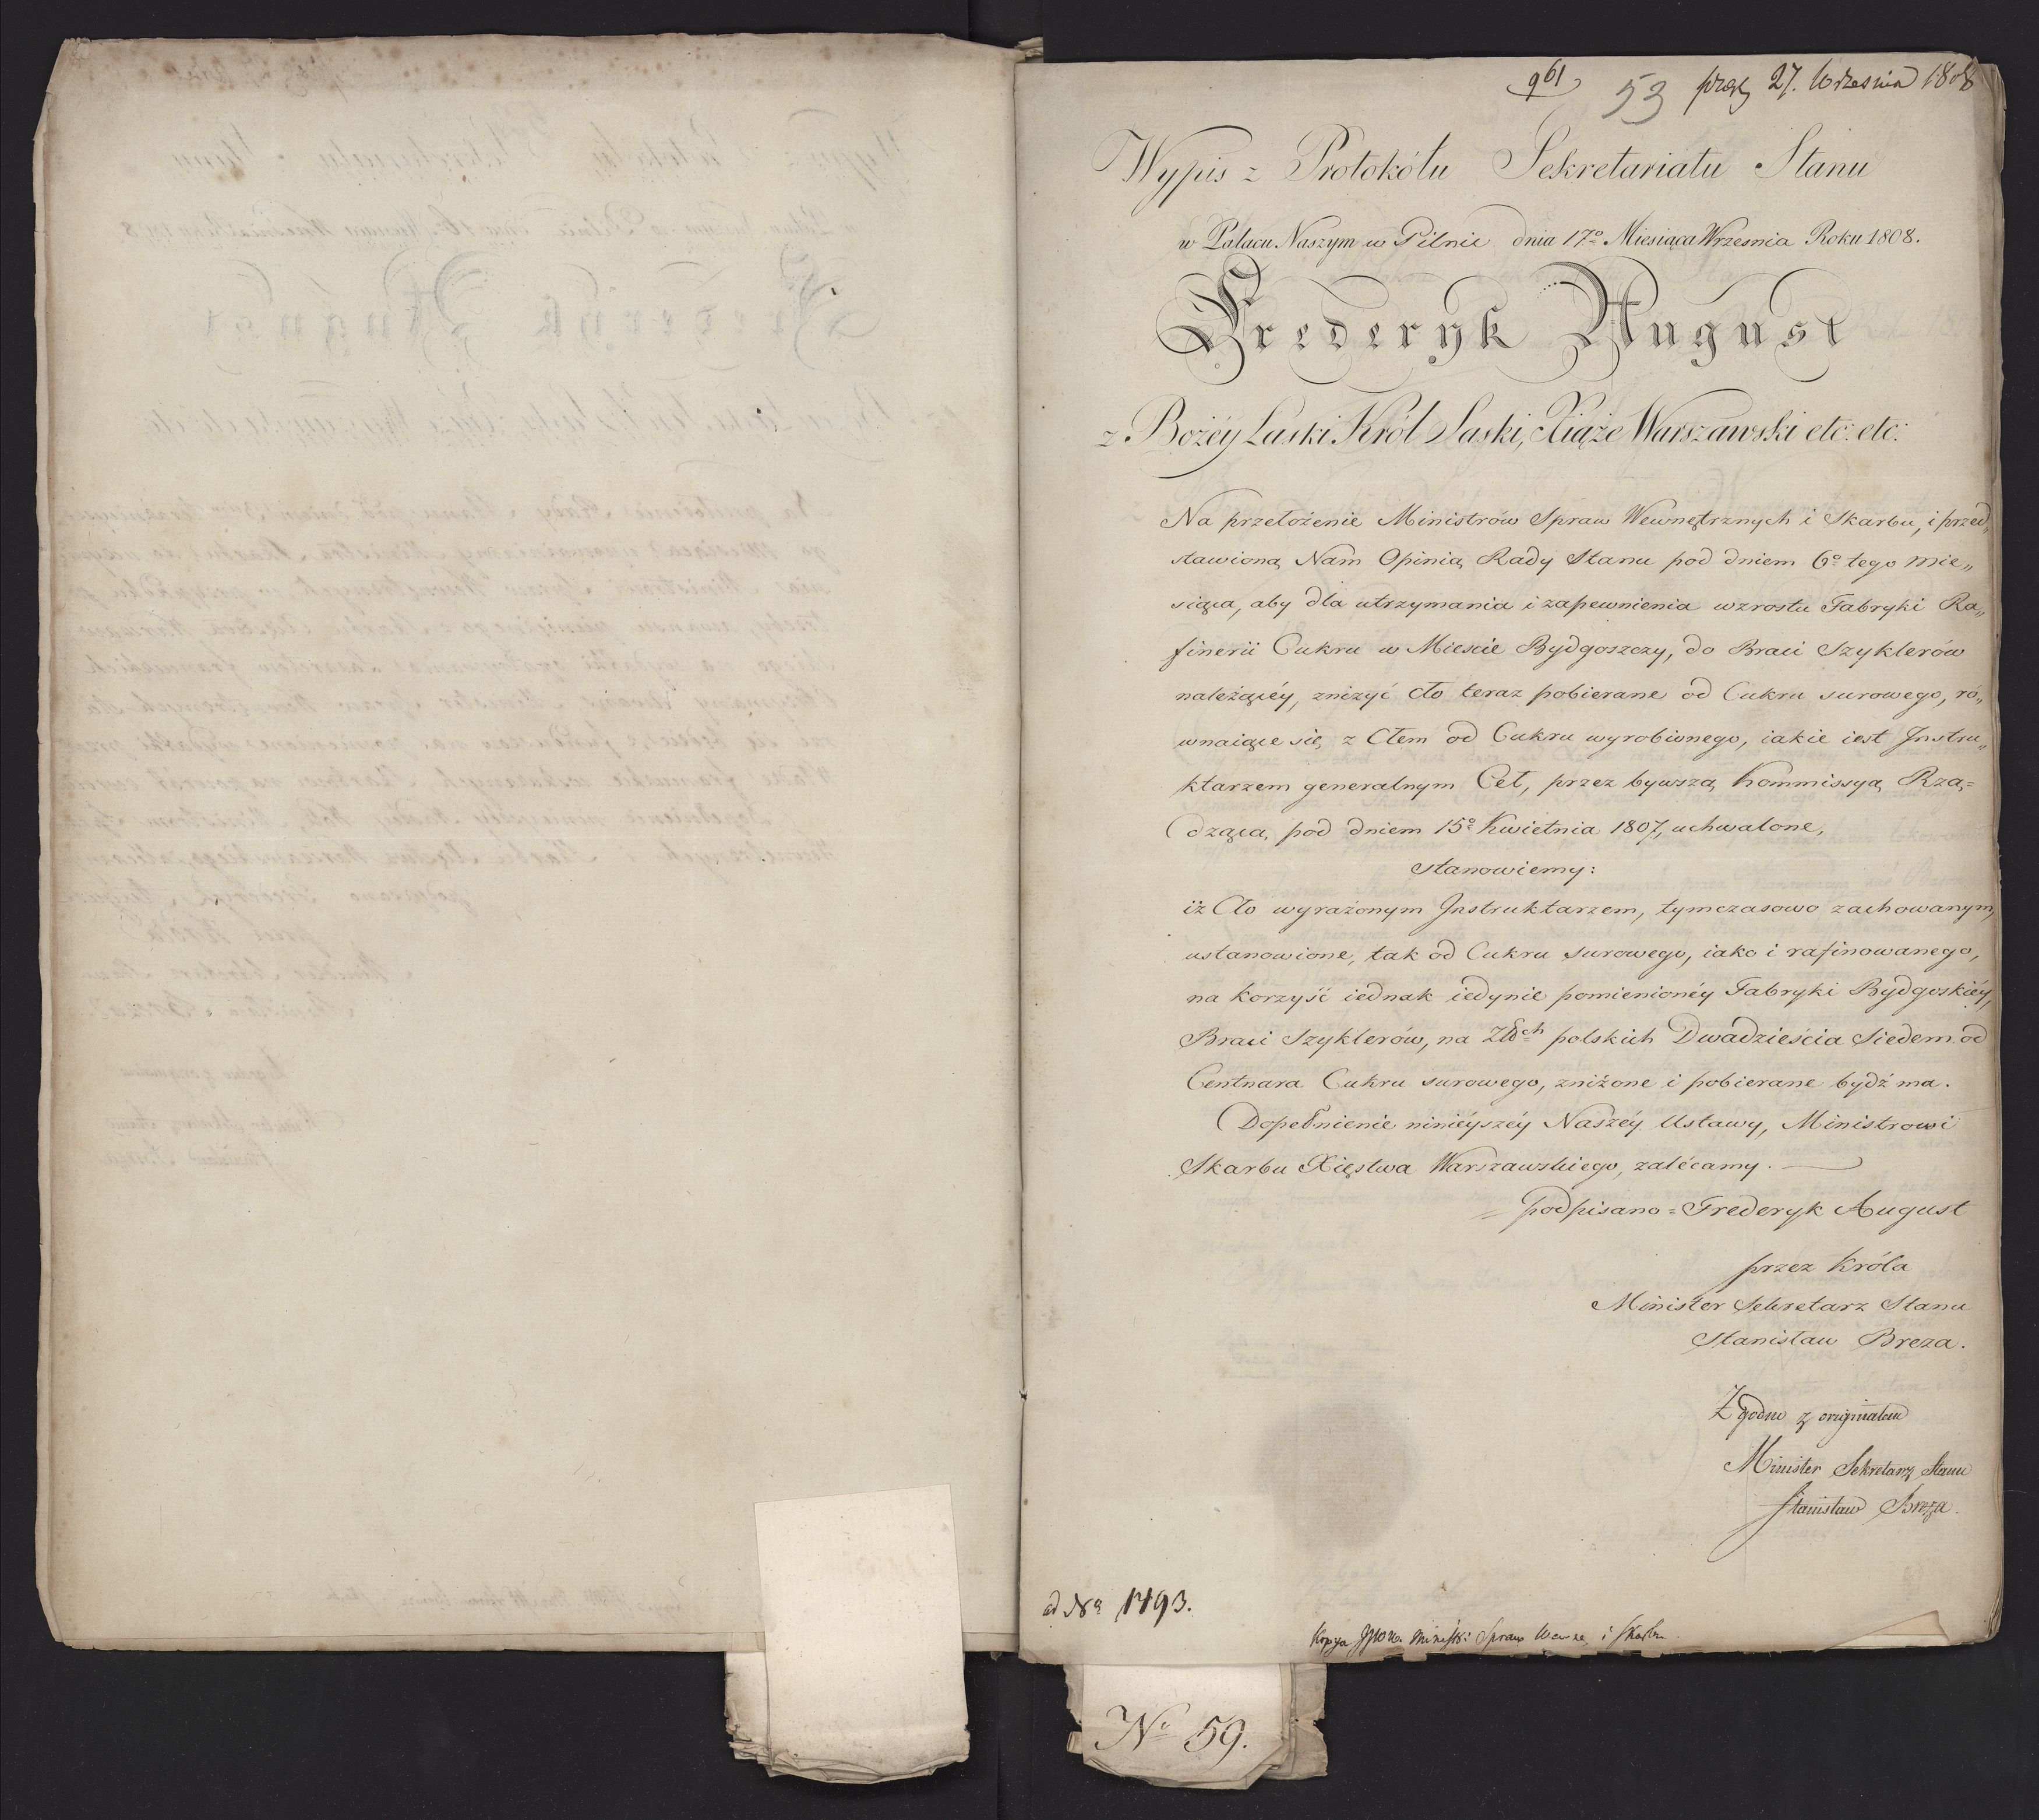 961 53 27. Września 1808
Wypis z Protokółu Sekretariatu Stanu
w Pałacu Naszym w Pilnic dnia 17º Miesiąca Wrzesnia Roku 1808.
Frederyk August
z Bożéy Łaski Król Saski, Xiąże Warszawski etc: etc:
Na przełożenie Ministrów Spraw Wewnętrznych i Skarbu, i przed„
stawioną Nam Opinią Rady Stanu pod dniem 6º tego mie„
siąca, aby dla utrzymania i zapewnienia wzrostu Fabryki Ra„
finerii Cukru w Miescie Bydgoszczy, do Braci Szyklerów
należącéy, zniżyć cło teraz pobierane od Cukru surowego, ró„
wnaiące się z Cłem od Cukru wyrobionego, iakie iest Instru„
ktarzem generalnym Ceł, przez bywszą Kommissyą Rzą=
dzącą pod dniem 15º Kwietnia 1807, uchwalone,
stanowiemy:
iż Cło wyrażonym Instruktarzem, tymczasowo zachowanym,
ustanowione, tak od Cukru surowego, iako i rafinowanego,
na korzyść iednak iedynie pomienionéy Fabryki Bydgoskiéy,
Braci Szyklerów, na Złłch polskich Dwadzieścia Siedem od
Centnara Cukru surowego, zniżone i pobierane bydź ma.
Dopełnienie ninieyszéy Naszéy Ustawy, Ministrowi
Skarbu Xięstwa Warszawskiego, zalécamy.
= podpisano = Frederyk August
przez Króla
Minister Sekretarz Stanu
Stanisław Breza.
Zgodno z oryginałem
Minister Sekretarz Stanu
Stanisław Breza.
ad Nº 1493.
Kopya Ministr: Spraw Wewnę. i Skarbu.
Nº 59.